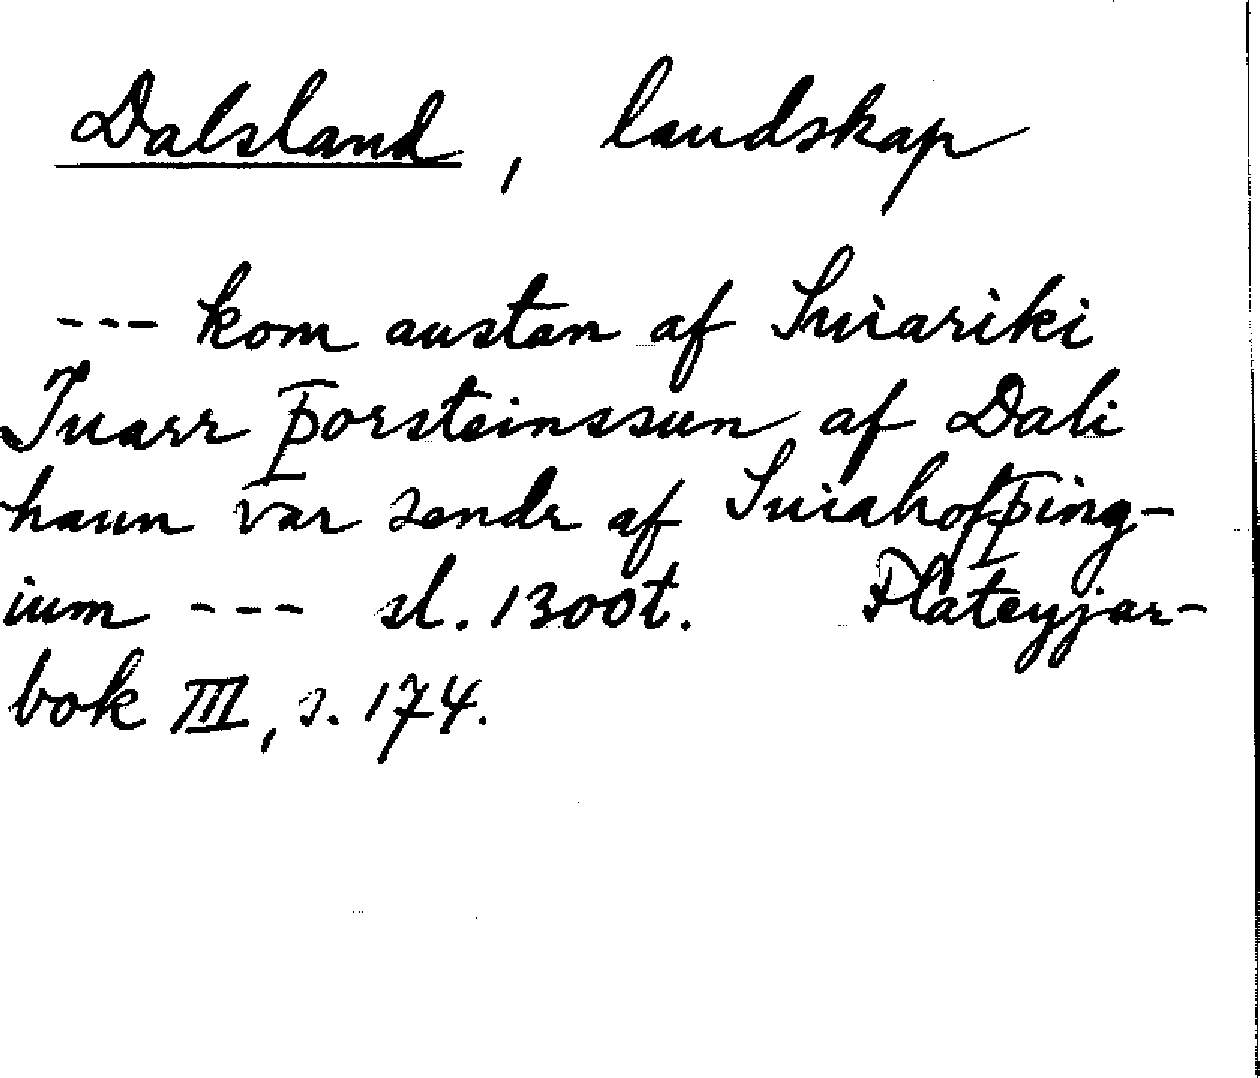 Dalsland, landskap
--- kom austan af Suiariki
Juarr þorsteinssun af Dali
hann var sendr af Suiahofþing-
ium --- sl. 1300t. Flateyjar-
bok III, s. 174.